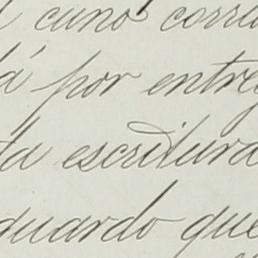 cuno corra
á por entre
ta escritura
duardo que